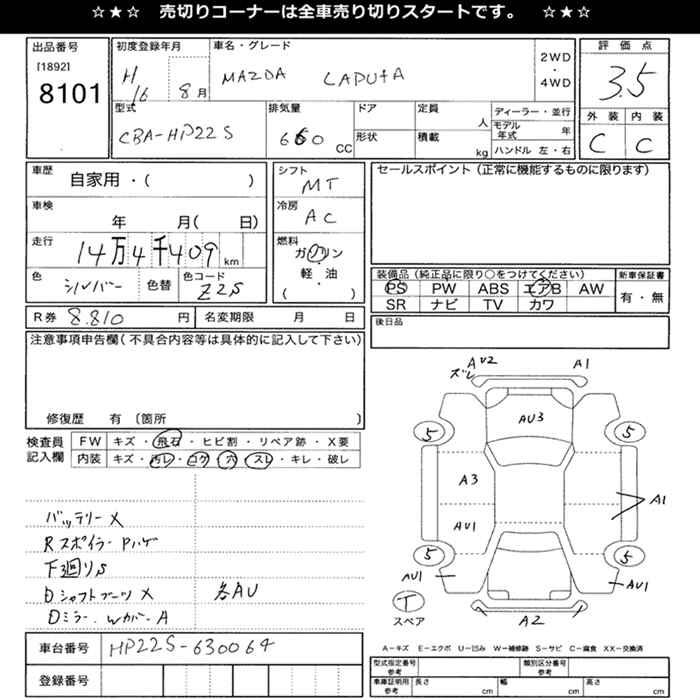 ☆★☆ 売切りコーナーは全車売り切りスタートです。 ☆★☆
出品番号
[1892]
8101
初度登録年月
H16 8月
車名・グレード
MAZDA LAPUTA
2WD
・
4WD
評価点
3.5
外装 内装
C C
型式
CBA-HP22S
排気量
660 CC
ドア
形状
定員
人
積載
kg
ディーラー・並行
モデル年式 年
ハンドル 左・右
車歴
自家用・( )
車検
年 月( 日)
走行
14万4千409 km
色
シルバー
色替
色コード
Z2S
シフト
MT
冷房
AC
燃料
ガソリン
・
軽・油
( )
セールスポイント(正常に機能するものに限ります)
装備品(純正品に限り○をつけてください)
PS PW ABS エアB AW
SR ナビ TV カワ
新車保証書
有・無
R券 8.810 円
名変期限 月 日
後日品
注意事項申告欄(不具合内容等は具体的に記入して下さい)
修復歴 有 〔箇所 〕
検査員記入欄
FW キズ・飛石・ヒビ割・リペア跡・X要
内装 キズ・汚レ・コゲ・穴・スレ・キレ・破レ
バッテリーX
Rスポイラー Pハゲ
下廻りS
Dシャフトブーツ X
各AU
Dミラー、WカバーA
AU2
ズレ
A1
AU3
5
5
A3
A1
AU1
5
5
AU1
AU1
T
スペア
A2
A-キズ E-エクボ U-凹み W-補修跡 S-サビ C-腐食 XX-交換済
車台番号 HP22S-630064
登録番号
型式指定番号
参考
類別区分番号
参考
車庫証明用
参考
長さ cm
幅 cm
高さ cm